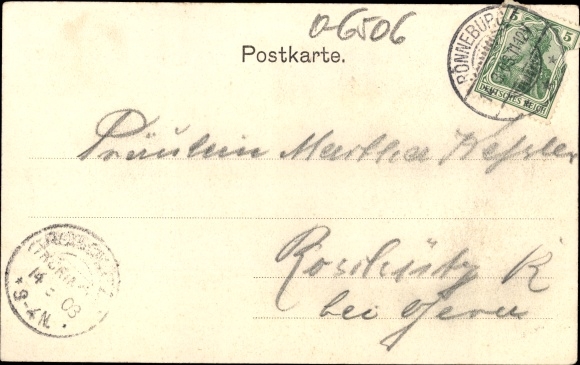 0-6506
Postkarte.
RONNEBURG
5 5
DEUTSCHES REICH
Fräulein Martha Kessler
Roschütz R
bei Gera
14 3 03
3-4 N.